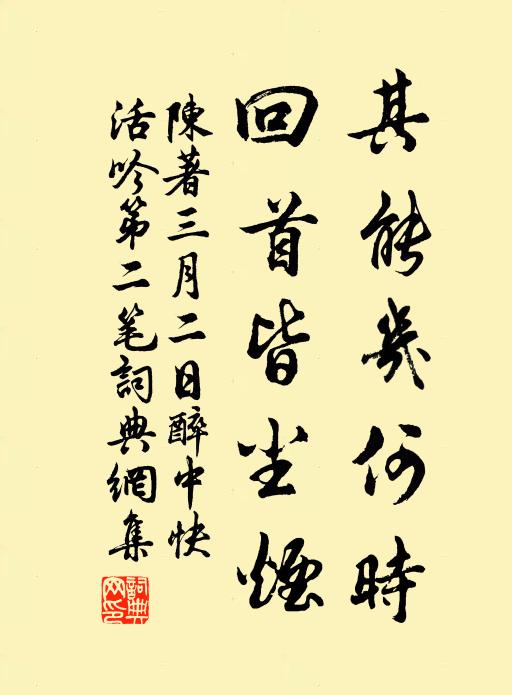 其能幾何時
回首皆尘煙
陳著三月二日醉中快
活吟第二笔詞典網集
詞典
网印